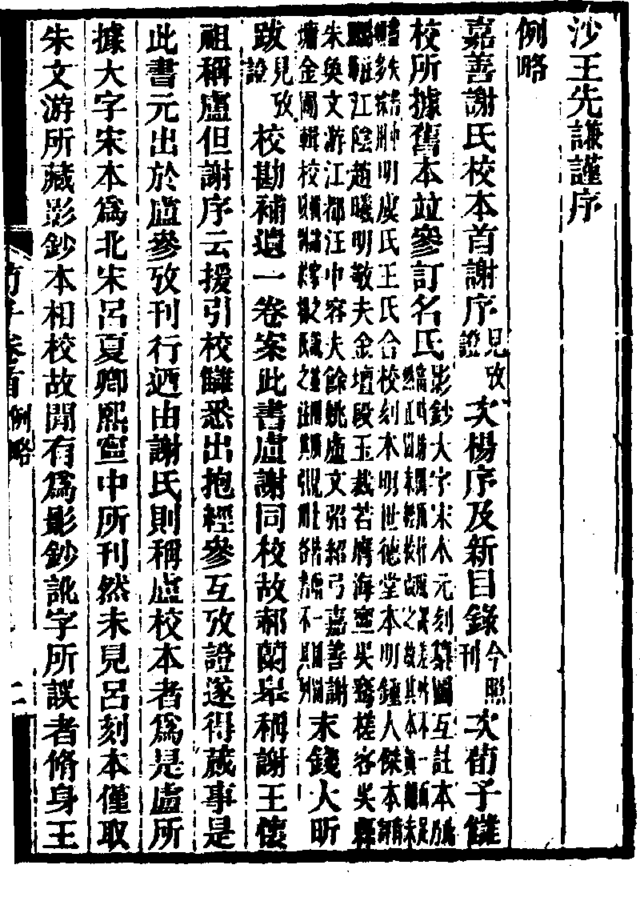 沙王先謙謹序
例略
嘉善謝氏校本首謝序見攷證次楊序及新目錄今照刊次荀子讎
校所據舊本並參訂名氏影鈔大字宋本元刻纂圖互註本
明虞氏王氏合校刻本明世德堂本明鍾人傑本
江陰趙曦明敬夫金壇段玉裁若膺海寧吳騫槎客吳縣
朱奐文游江都汪中容夫餘姚盧文弨紹弓嘉善謝
墉金圃輯校末錢大昕
跋見攷證校勘補遺一卷案此書盧謝同校故郝蘭皋稱謝王懷
祖稱盧但謝序云援引校讎悉出抱經參互攷證遂得蕆事是
此書元出於盧參攷刊行迺由謝氏則稱盧校本者爲是盧所
據大字宋本爲北宋呂夏卿熙寧中所刊然未見呂刻本僅取
朱文游所藏影鈔本相校故閒有爲影鈔訛字所誤者脩身王
荀子卷首 例略 二